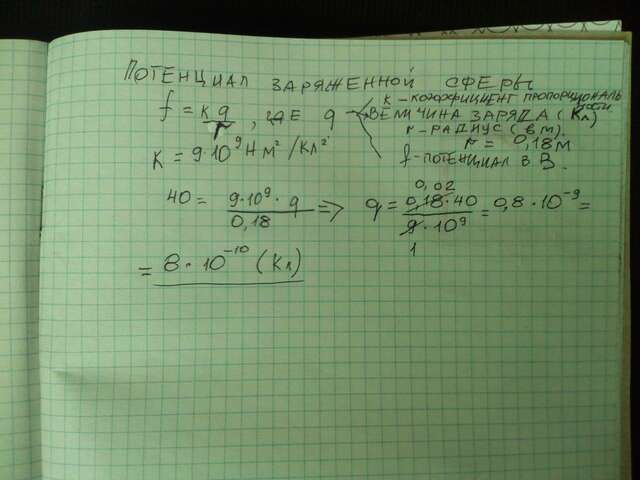 ПОТЕНЦИАЛ ЗАРЯЖЕННОЙ СФЕРЫ
f = kq/r, ГДЕ q – ВЕЛИЧИНА ЗАРЯДА (Кл)
k – КОЭФФИЦИЕНТ ПРОПОРЦИОНАЛЬНОСТИ
r – РАДИУС (в м).
k = 9·10⁹ Н м² / Кл²
r = 0,18 м
f – ПОТЕНЦИАЛ В В.
40 = 9·10⁹ · q / 0,18 => q = 0,18·40 / 9·10⁹ = 0,8·10⁻⁹ =
0,02
1
= 8·10⁻¹⁰ (Кл)